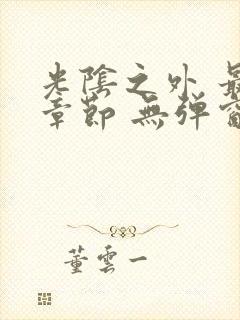 光陰之外 最
章節 無弹窗
董雲一